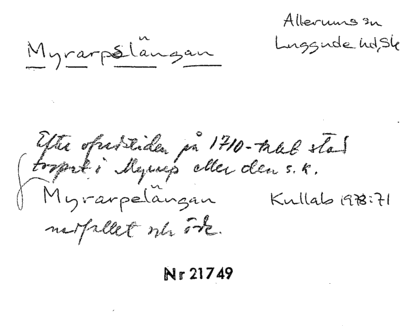 Allerums sn
Luggude hd, Sk
Myrarpslängan
Efter ofredstiden på 1710-talet stod
torpet i Myrup eller den s.k.
Myrarpelängan Kullab 1978:71
nedfallet och öde.
Nr 21749